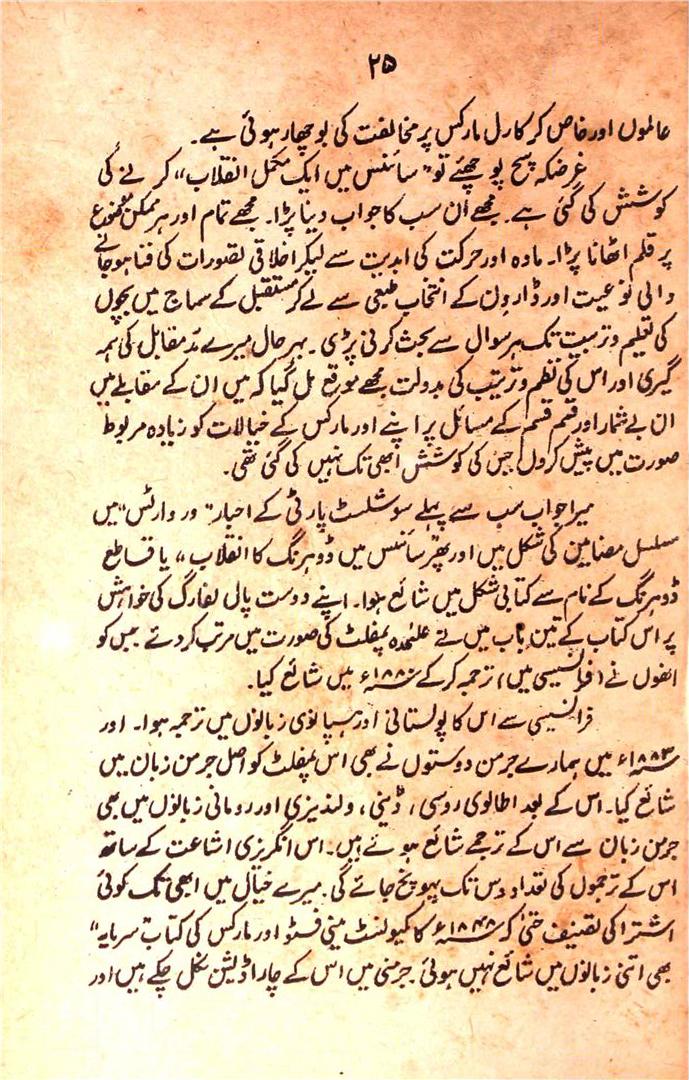 ۲۵
عالموں اور خاص کر کارل مارکس پر مخالفت کی بوچھار ہوئی ہے۔
غرضکہ سچ پوچھئے تو "سائنس میں ایک مکمل انقلاب" کرنے کی
کوشش کی گئی ہے۔ مجھے ان سب کا جواب دینا پڑا۔ مجھے تمام اور ہر ممکن موضوع
پر قلم اٹھانا پڑا۔ مادہ اور حرکت کی ابدیت سے لیکر اخلاقی تصورات کی فنا ہو جانے
والی نوعیت اور ڈارون کے انتخاب طبعی سے لے کر مستقبل کے سماج میں بچوں
کی تعلیم و تربیت تک ہر سوال سے بحث کرنی پڑی۔ بہرحال میرے مدّ مقابل کی ہمہ
گیری اور اس کی نظم و ترتیب کی بدولت مجھے موقع مل گیا کہ میں ان کے مقابلے میں
ان بے شمار اور قسم قسم کے مسائل پر اپنے اور مارکس کے خیالات کو زیادہ مربوط
صورت میں پیش کروں جس کی کوشش ابھی تک نہیں کی گئی تھی۔
میرا جواب سب سے پہلے سوشلسٹ پارٹی کے اخبار "ور وارٹس" میں
مسلسل مضامین کی شکل میں اور پھر "سائنس میں ڈوہرنگ کا انقلاب" یا قاطع
ڈوہرنگ کے نام سے کتابی شکل میں شائع ہوا۔ اپنے دوست پال لفارگ کی خواہش
پر اس کتاب کے تین باب میں نے علیٰحدہ پمفلٹ کی صورت میں مرتب کر دئے جس کو
انھوں نے (فرانسیسی میں) ترجمہ کر کے ۱۸۸۰ء میں شائع کیا۔
فرانسیسی سے اس کا پولستانی اور ہسپانوی زبانوں میں ترجمہ ہوا۔ اور
۱۸۸۳ء میں ہمارے جرمن دوستوں نے بھی اس پمفلٹ کو اصل جرمن زبان میں
شائع کیا۔ اس کے بعد اطالوی روسی، ڈینی، ولندیزی اور رومانی زبانوں میں بھی
جرمن زبان سے اس کے ترجمے شائع ہوئے ہیں۔ اس انگریزی اشاعت کے ساتھ
اس کے ترجموں کی تعداد دس تک پہونچ جائے گی۔ میرے خیال میں ابھی تک کوئی
اشتراکی تصنیف حتیٰ کہ ۱۸۴۸ء کا کمیونسٹ مینی فسٹو اور مارکس کی کتاب "سرمایہ"
بھی اتنی زبانوں میں شائع نہیں ہوئی۔ جرمنی میں اس کے چار اڈیشن نکل چکے ہیں اور